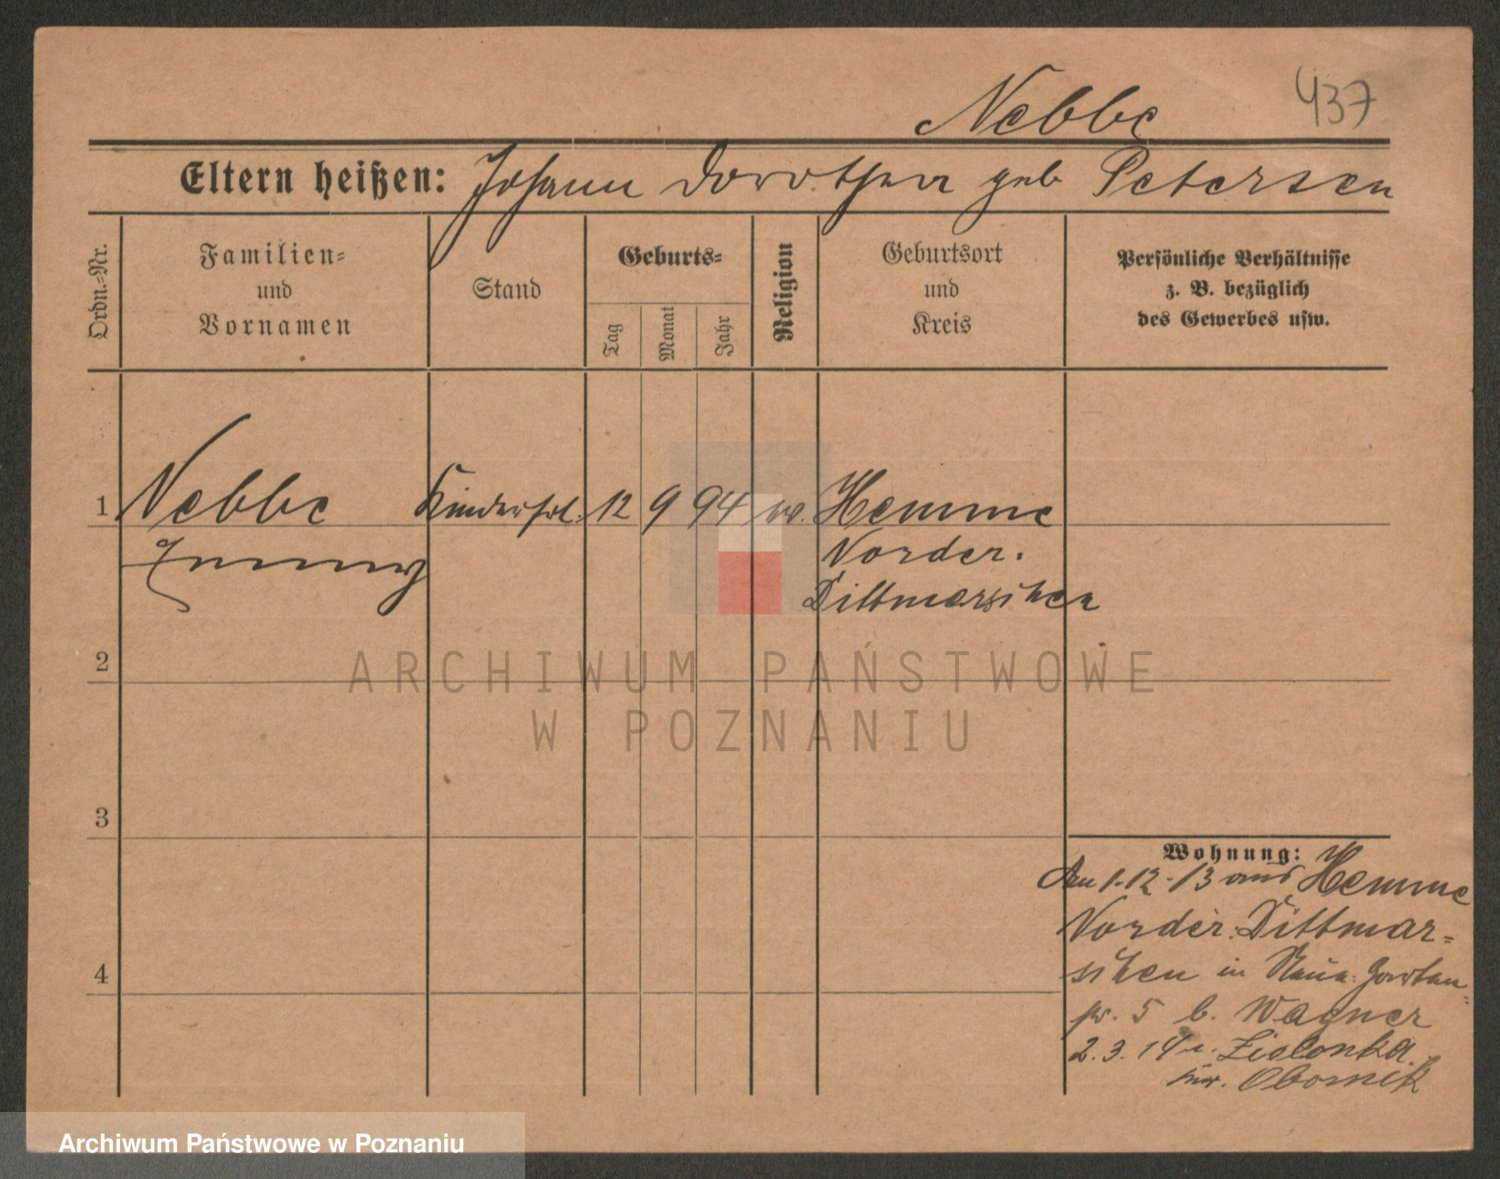 437
Nebbe
Eltern heißen: Johann Dorothea geb Petersen
Ordn.-Nr.
Familien-
und
Vornamen
Stand
Geburts-
Tag
Monat
Jahr
Religion
Geburtsort
und
Kreis
Persönliche Verhältnisse
z. B. bezüglich
des Gewerbes usw.
1 Nebbe Kinderfrl. 12 9 94 Hemme
Vorder.
Dittmarschen
2
3
4
Wohnung:
1.12.13 aus Hemme
Vorder. Dittmar-
schen in Garten-
str. 5 b. Wagner
2.3.14 n. Zielonka
Kr. Obornik
ARCHIWUM PAŃSTWOWE
W POZNANIU
Archiwum Państwowe w Poznaniu